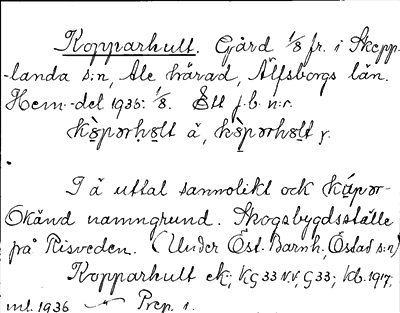 Kopparhult. Gård 1/8 fr. i Skepp-
-landa s:n, Ale härad, Älfsborgs län.
Hem.-del 1935: 1/8. Ett f.b. n:r.
kòpərhu̠lt ä, kòpərhu̠lt y.
I ä uttal sannolikt ock kápər-
Okänd namngrund. Skogsbygdsställe
på Risveden. (Under Öst. Barnh., Östad s:n)
Kopparhult ek; KG 33 N.V, G 33; Kb. 1917,
ml. 1936 Prep. i.